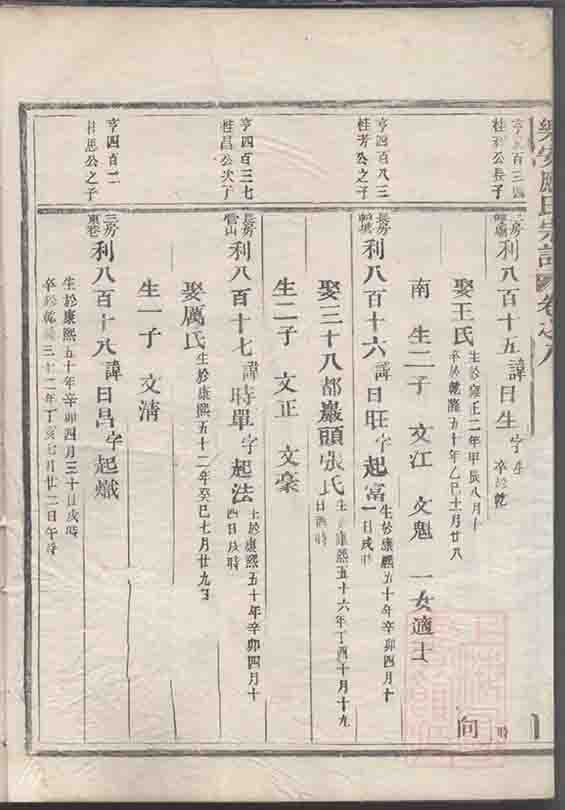 樂安
宗譜
卷之八
亨
百三
桂
公長子
房
利八百十五諱日生字
卒於乾
娶王氏
生於雍正二年甲辰八月十
卒於乾隆五十年乙巳十月廿八
時
向
南 生二子 文江 文魁 一女適上
亨四百八三
桂芳公之子
長房
利八百十六諱日旺字起富
生於康熙五十年辛卯四月十
一日戌時
娶三十八都巖頭張氏
生於康熙五十六年丁酉十月十九
日酉時
生二子 文正 文豪
亨四百三七
桂昌公次子
長房
管山
利八百十七諱時單字起法
生於康熙五十年辛卯四月十
四日戌時
娶厲氏
生於康熙五十二年癸巳七月廿九日
生一子 文清
亨四百二
桂思公之子
三房
東巷
利八百十八諱日昌字起熾
生於康熙五十年辛卯四月三十日戌時
卒於乾隆三十二年丁亥七月廿二日午時